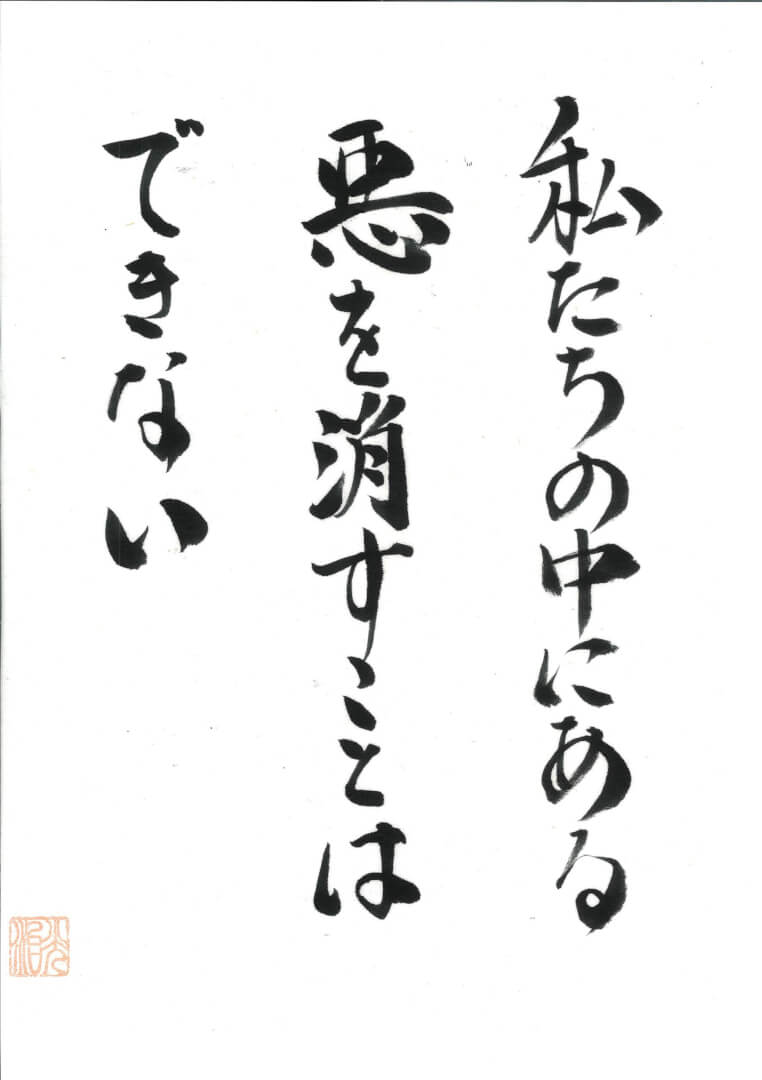 私たちの中にある
悪を消すことは
できない